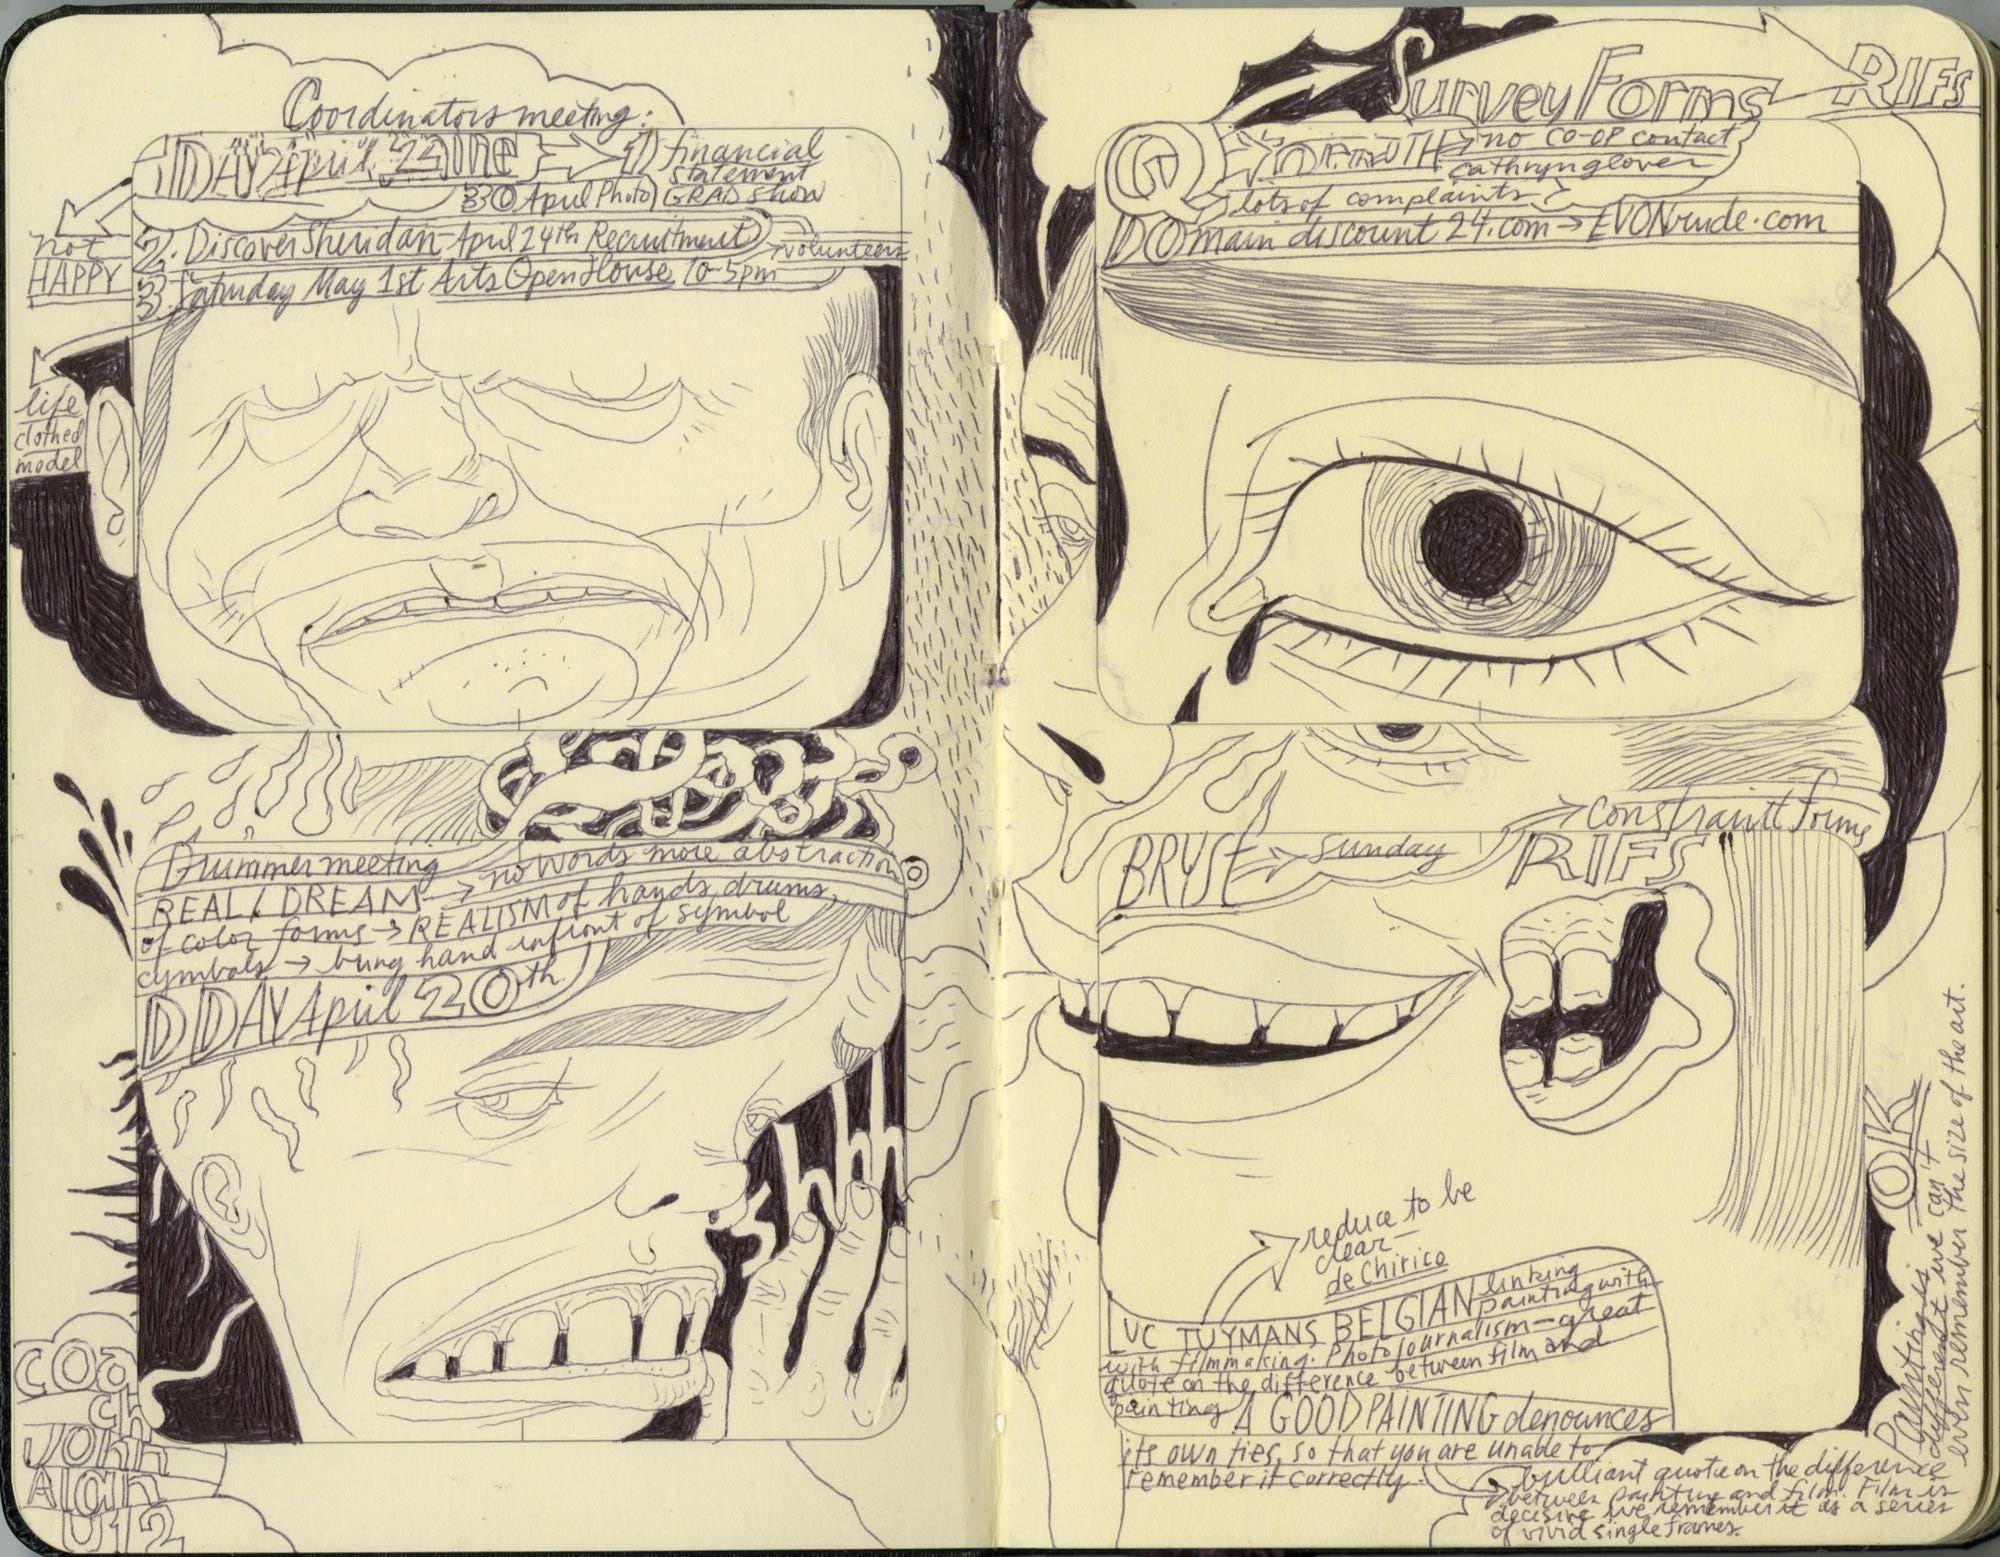 Coordinators meeting:
DDAY April 22
1) financial
statement
30 April Photo) GRAD show
2. Discover Sheridan-April 24th Recruitment
→ volunteers
3 Saturday May 1st Arts Open House 10-5pm
not
HAPPY
life
clothed
model
Drummer meeting
REAL/DREAM → no words more abstraction
of color forms → REALISM of hands, drums,
cymbals → bring hand infront of symbol
DDAY April 20th
Shhh
coa
ch
John
Alan
U12
Survey Forms
RIFS
no CO-OP contact
cathryn glover
lots of complaints
DOmain discount 24.com → EVONrude.com
constraint forms
BRYSE → Sunday
RIFS
reduce to be
clear-
de Chirico
LUC TUYMANS BELGIAN linking
painting with
with filmmaking. Photojournalism - great
quote on the difference between film and
painting A GOOD PAINTING denounces
its own ties, so that you are unable to
remember it correctly.
brilliant quote on the difference
between painting and film. Film is
decisive we remember it as a series
of vivid single frames.
OK
Painting is
different we can't
even remember the size of the art.